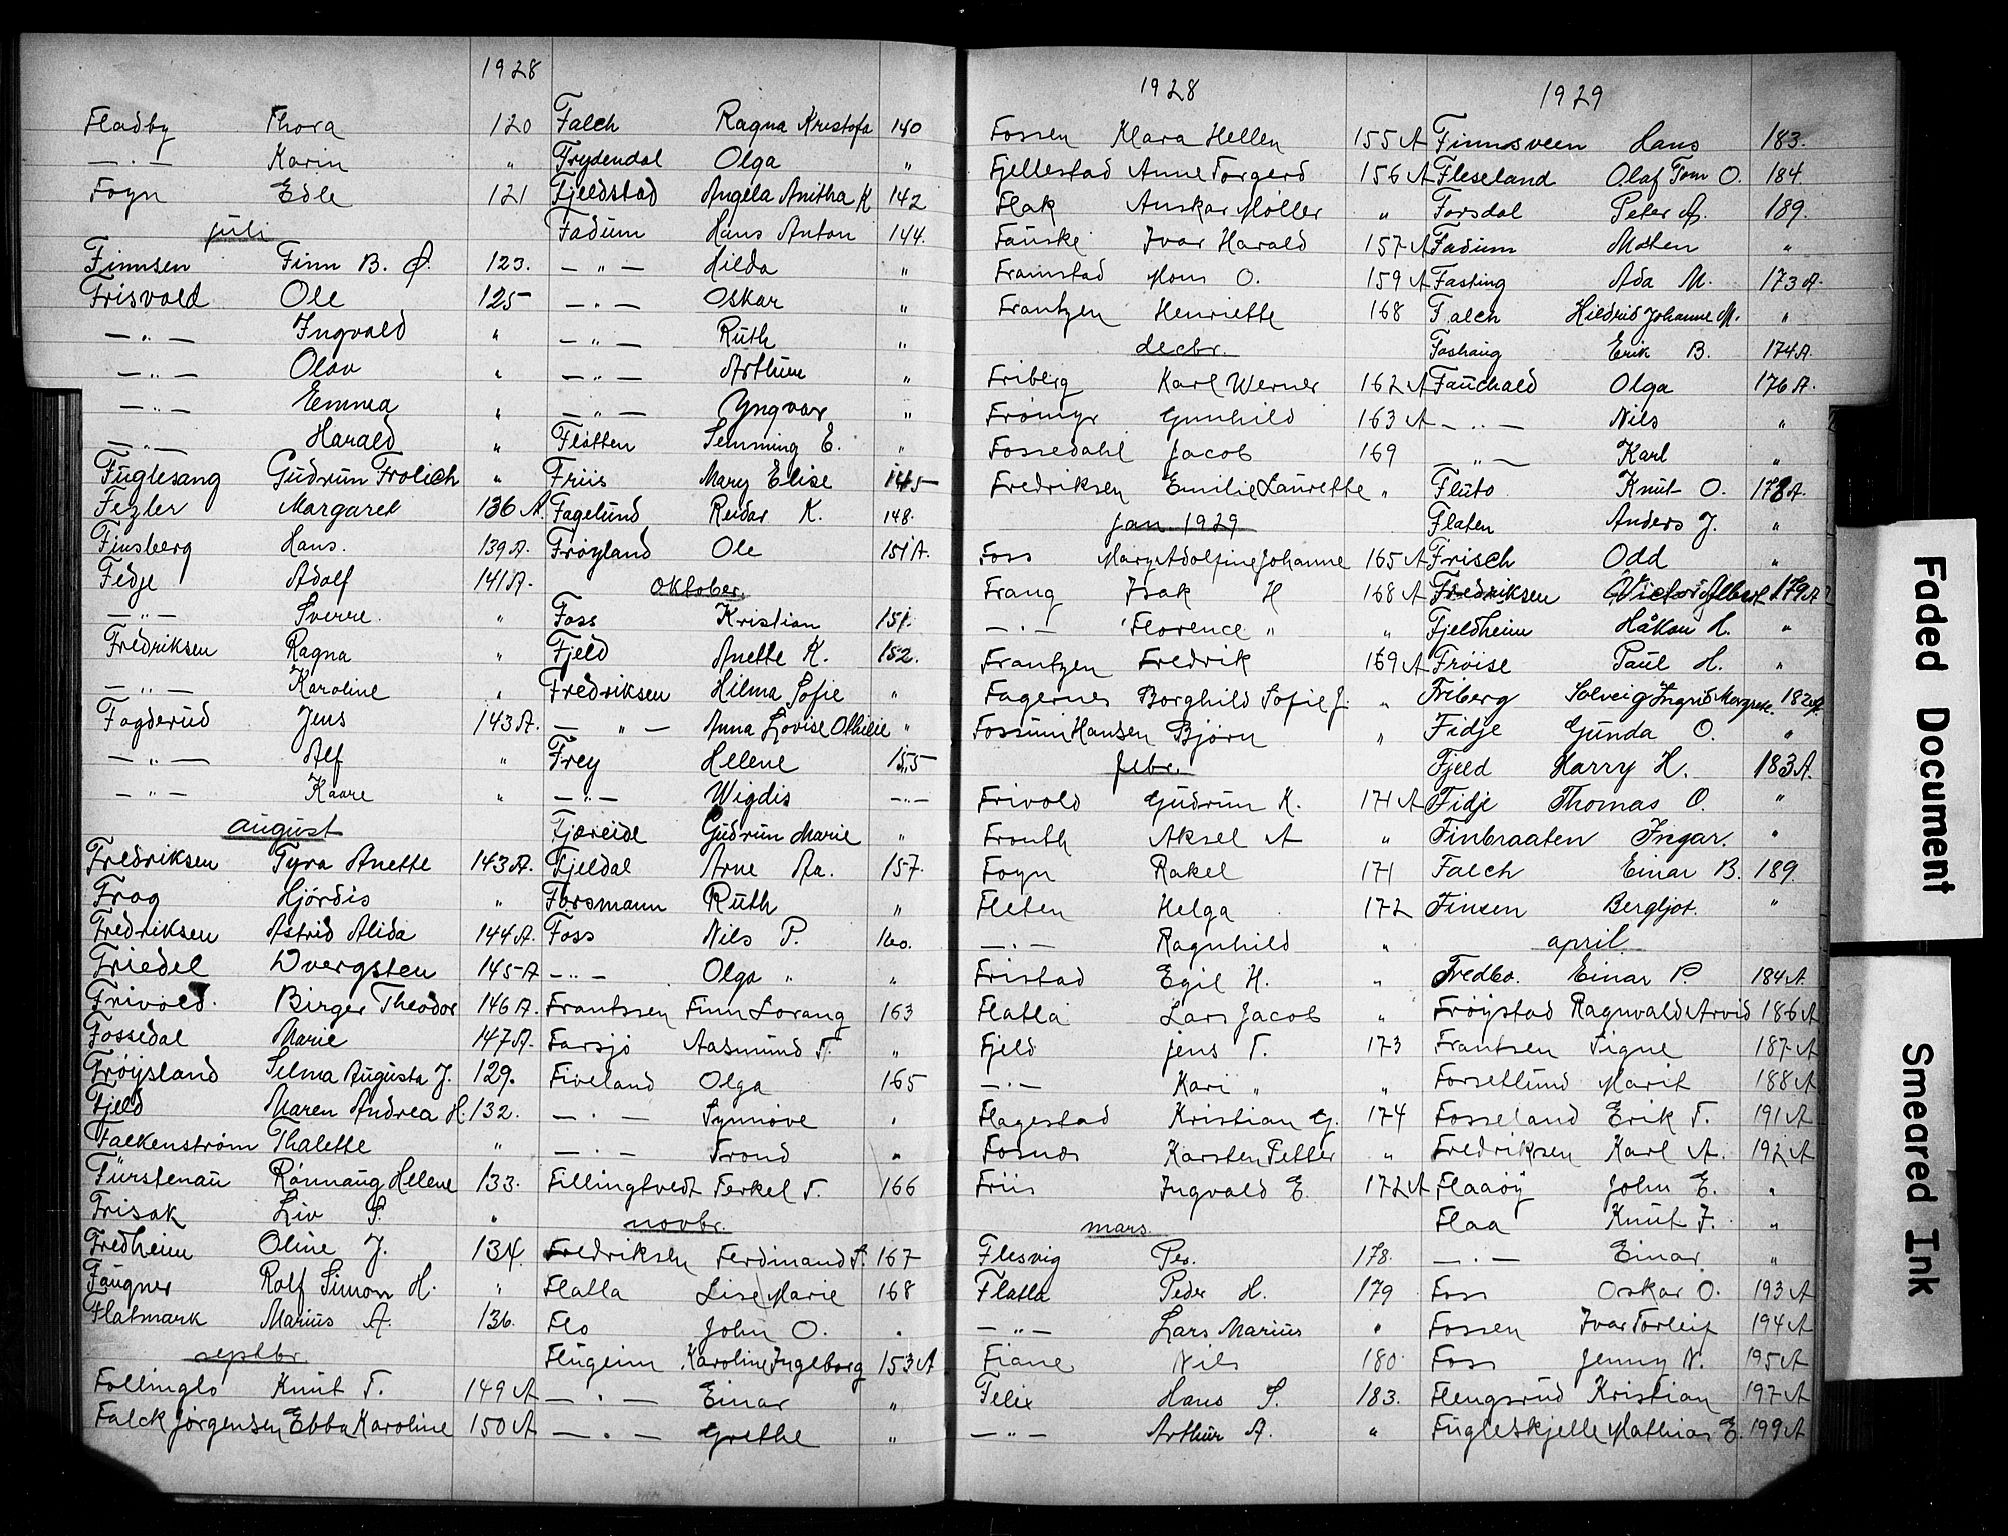 1928
Fladby Thora 120
— " — Karin "
Foyn Edle 121
juli
Finnsen Finn B. Ø. 123.
Frisvold Ole 125
— " — Ingvald "
— " — Olav "
— " — Emma "
— " — Harald "
Fuglesang Gudrun Frolich "
Fezler Margaret 136 A.
Finsberg Hans. 139 A.
Fedje Adolf 141 A.
— " — Sverre. "
Fredriksen Ragna "
— " — Karoline "
Fogderud Jens 143 A.
— " — Alf "
— " — Kaare "
august
Fredriksen Tyra Anette 143 A.
Frog Hjördis "
Fredriksen Astrid Alida 144 A.
Friedel Dvergsten 145 A
Frivold. Birger Theodor 146 A.
Fossedal Marie 147 A.
Frøysland Selma Augusta J. 129.
Fjeld Maren Andrea H. 132.
Falkenstrøm Thalette "
Fürstenau Rønnaug Helene 133.
Frisak Liv S. "
Fredheim Oline J. 134.
Faugner Rolf Simon H. "
Flatmark Marius A. 136.
septbr.
Follinglo Knut T. 149 A
Falck Jørgensen Ebba Karoline 150 A
Falch Ragna Kristofa 140
Frydendal Olga "
Fjeldstad Angela Anitha K 142
Fadum Hans Anton 144.
— " — Hilda "
— " — Oskar "
— " — Ruth "
— " — Arthur "
— " — Yngvar "
Fløtten Semming E. "
Friis Mary Elise 145
Fagelund Reidar K. 148.
Frøyland Ole 151 A.
oktober.
Foss Kristian 151.
Fjeld Anette K. 152.
Fredriksen Hilma Sofie "
— " — Anna Lovise Othilie "
Frey Helene 155
— " — Wigdis — " —
Fjæreide Gudrun Marie "
Fjeldal Arne Aa. 157.
Forsmann Ruth "
Foss Nils P. 160.
— " — Olga " "
Frantssen Finn Lorang 163
Farsjø Aasmund T. "
Fiveland Olga 165
— " — Synnøve "
— " — Trond "
Fillingtvedt Terkel T. 166
novbr.
Fredriksen Ferdinand S. 167
Flatla Lise Marie 168
Flo John O. "
Flugeim Karoline Ingeborg 153 A
— " — Einar "
— " — Grethe "
1928
Fossen Klara Hellen 155 A
Fjellestad Anne Torgerd 156 A
Flak Anskar Møller "
Fauske Ivar Harald 157 A
Framstad Mons O. 159 A
Frantzen Henriette 168
decbr.
Friberg Karl Werner 162 A
Frømyr Gunhild 163 A
Fossedahl Jacob 169
Fredriksen Emilie Laurette "
Jan 1929
Foss Mary Adolfine Johanne 165 A
Frang Isak H 168 A
— " — Florence " "
Frantzen Fredrik 169 A
Fagernes Borghild Sofie J. "
Fossum Hansen Bjørn "
febr.
Frivold Gudrun K. 171 A
Fronth Aksel A "
Foyn Rakel 171
Fleten Helga 172
— " — Ragnhild "
Fristad Egil H. "
Flatla Lars Jacob "
Fjeld Jens T. 173
— " — Kari " "
Flagestad Kristian G. 174
Fosnæs Karsten Petter "
Friis Ingvald E. 172 A
mars.
Flesvig Per. 178.
Flatla Peder H. 179
— " — Lars Marius "
Fiane Nils 180
Felix Hans S. 183.
— " — Arthur A. "
1929
Finnsveen Hans 183.
Fleseland Olaf Tom O. 184.
Forsdal Peter A. 189.
Fadum Morten "
Fasting Ada M. 173 A.
Falch Hildrid Johanne M. "
Foshaug Erik B. 174 A.
Fauchald Olga 176 A.
— " — Nils "
— " — Karl "
Fluto Knut O. 178 A.
Flaten Anders J. "
Frisch Odd "
Fredriksen Victor Albert 179 A
Fjeldheim Håkon H. "
Frøise Paul H. "
Friberg Solveig Ingrid Margrete. 182 A.
Fidje Gunda O. "
Fjeld Harry H. 183 A.
Fidje Thomas O. "
Finbraaten Ingar. "
Falch Einar B. 189.
Finsen Bergljot. "
april
Fredbo. Einar P. 184 A.
Frøystad Ragnvald Arvid 186 A
Frantsen Signe 187 A
Forsetlund Marit 188 A
Fosseland Erik T. 191 A
Fredriksen Karl A. 192 A
Flaaöy John E. "
Flaa Knut J. "
— " — Einar "
Foss Oskar O. 193 A
Fossen Ivar Torleif 194 A
Foss Jenny N. 195 A
Flengsrud Kristian 197 A
Fugleskjelle Mathias E. 199 A
Faded Document
Smeared Ink